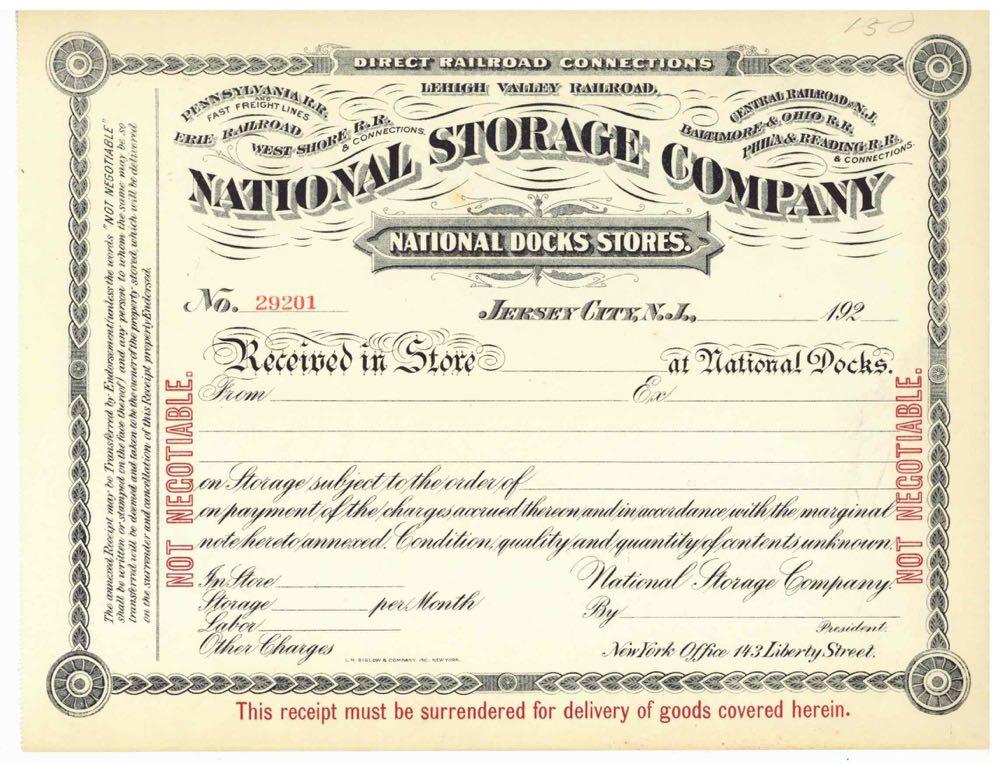 150
DIRECT RAILROAD CONNECTIONS
LEHIGH VALLEY RAILROAD.
PENNSYLVANIA R.R.
AND
FAST FREIGHT LINES
ERIE RAILROAD
WEST SHORE, R.R.
& CONNECTIONS.
CENTRAL RAILROAD OF N.J.
BALTIMORE & OHIO R.R.
PHILA & READING R.R.
& CONNECTIONS.
NATIONAL STORAGE COMPANY
NATIONAL DOCKS STORES.
No. 29201
JERSEY CITY, N.J., 192
Received in Store at National Docks.
From Ex
on Storage subject to the order of
on payment of the charges accrued thereon and in accordance with the marginal
note hereto annexed. Condition, quality and quantity of contents unknown.
In Store National Storage Company.
Storage per Month By
Labor President.
Other Charges New York Office 143 Liberty Street.
L.H. BIGLOW & COMPANY, INC. NEW YORK.
The annexed Receipt may be Transferred by Endorsement (unless the words "NOT NEGOTIABLE"
shall be written or stamped on the face thereof) and any person to whom the same may be so
transferred will be deemed and taken to be the owner of the property stored, which will be delivered
on the surrender and cancellation of this Receipt properly Endorsed.
NOT NEGOTIABLE.
NOT NEGOTIABLE.
This receipt must be surrendered for delivery of goods covered herein.